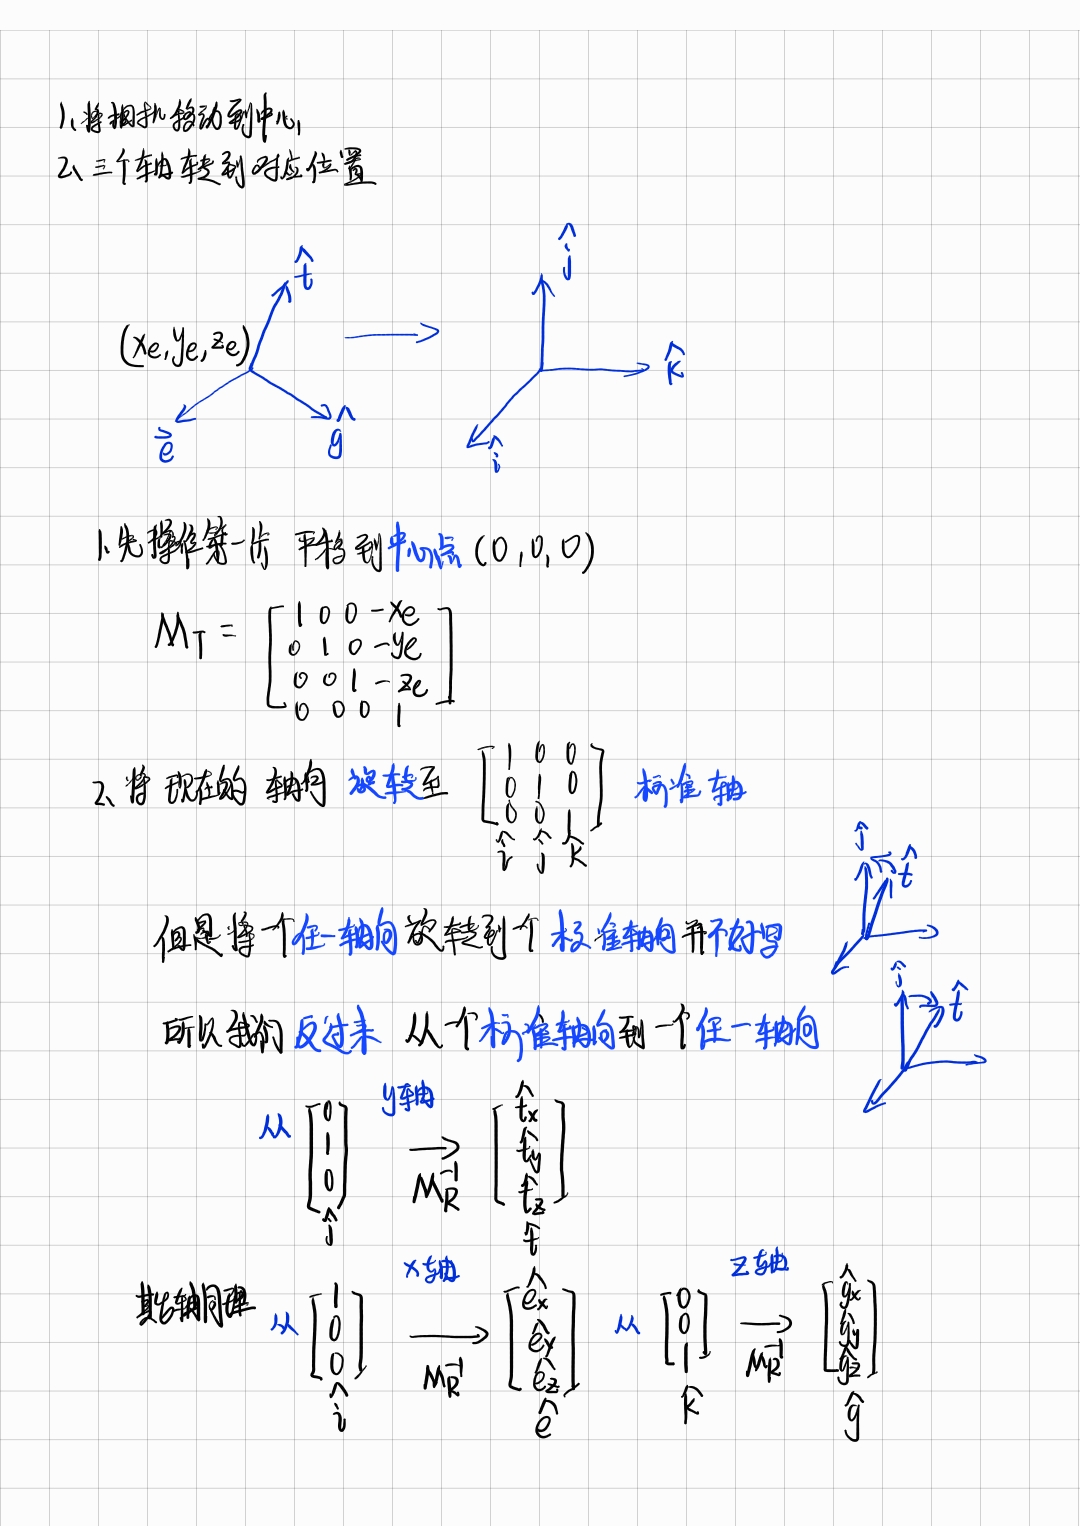 1、将相机移动到中心
2、三个轴转到对应位置
t̂
ĵ
(xe, ye, ze)
k̂
e⃗
ĝ
î
1、先操作第一步 平移到中心点 (0, 0, 0)
M_T = [1 0 0 -xe
0 1 0 -ye
0 0 1 -ze
0 0 0 1]
2、将现在的轴向旋转至 [1 0 0
0 1 0
0 0 1] 标准轴
î ĵ k̂
ĵ t̂
但是将一个任一轴向旋转到个标准轴向并不好写
ĵ t̂
所以我们反过来 从一个标准轴向到一个任一轴向
y轴
从 [0 1 0] → M_R⁻¹ [t̂x t̂y t̂z]
ĵ t̂
x轴 z轴
其它轴同理 从 [1 0 0] → M_R⁻¹ [êx êy êz] 从 [0 0 1] → M_R⁻¹ [ĝx ĝy ĝz]
î ê k̂ ĝ